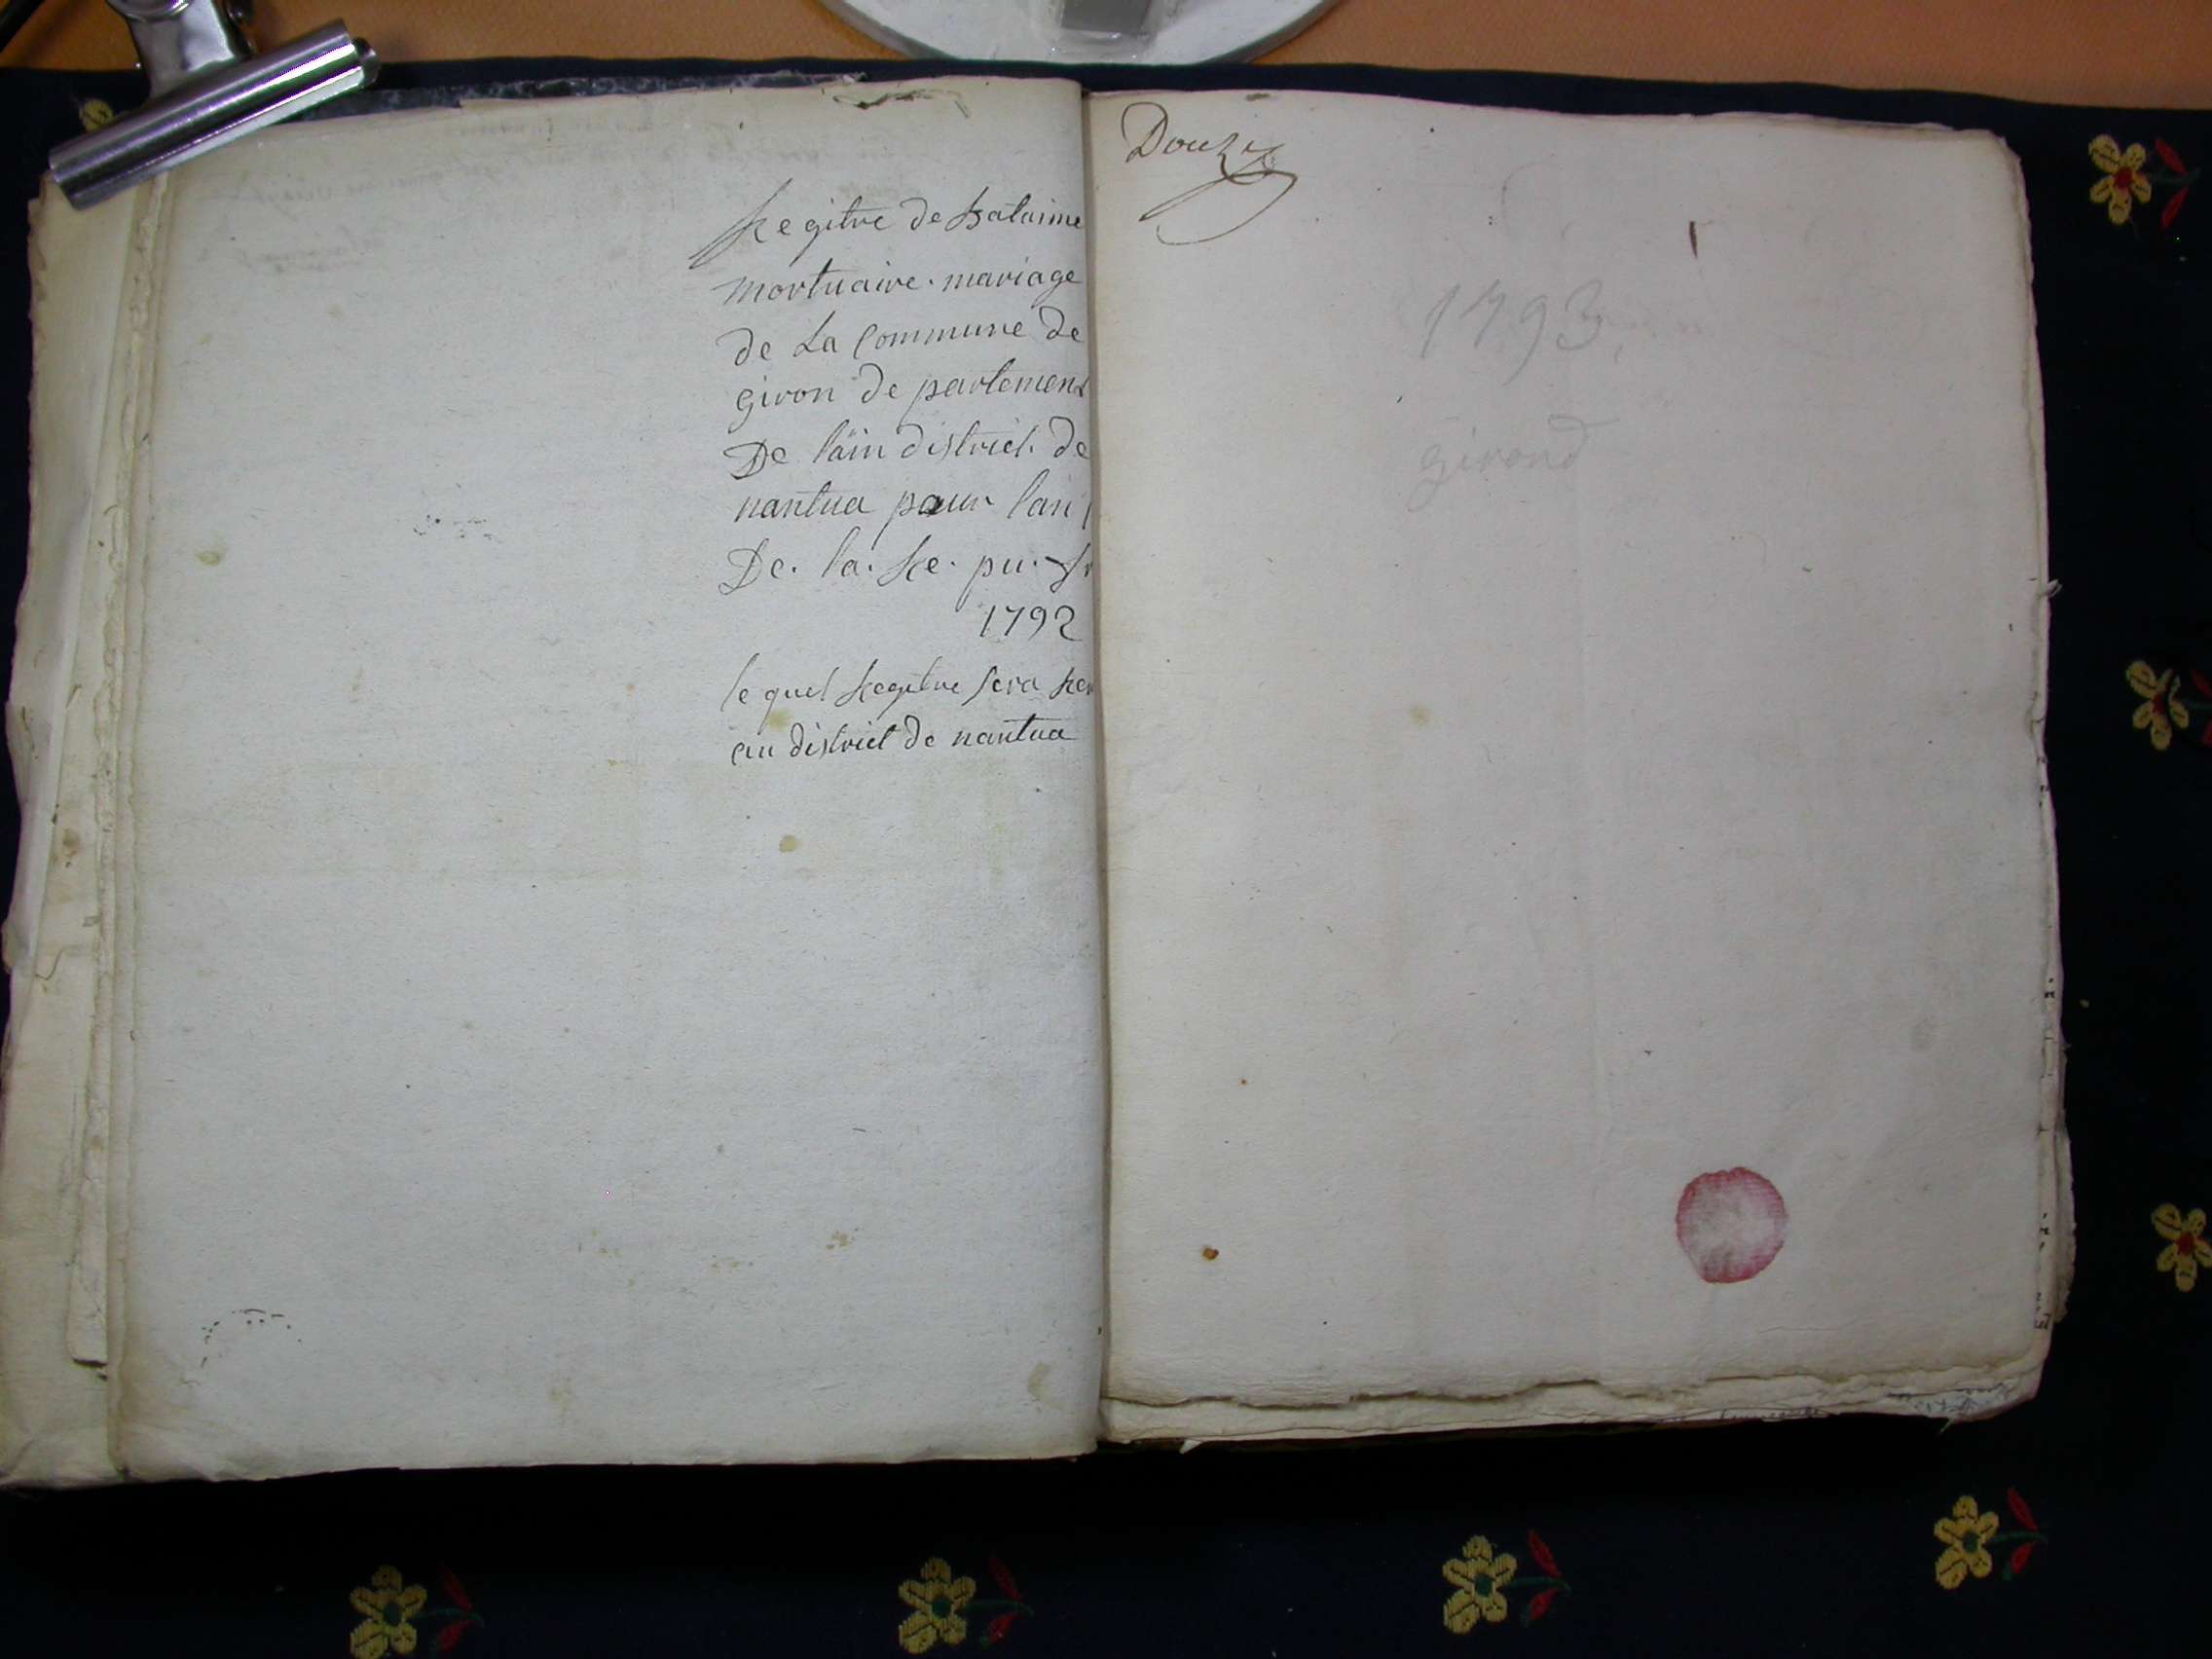 Regitre de Batisme
mortuaire. mariage
de La Commune de
giron de partement
De läin district. de
nantua pour lan 1
De. la. Re. pu. fr
1792
le quel Regitre sera Ren
au district de nantua
Douzy
1
1793,
girond